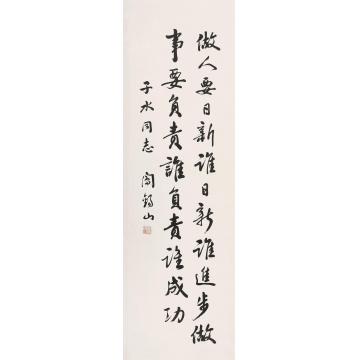 做人要日新誰日新誰進步做
事要負責誰負責誰成功
子水同志 閻錫山